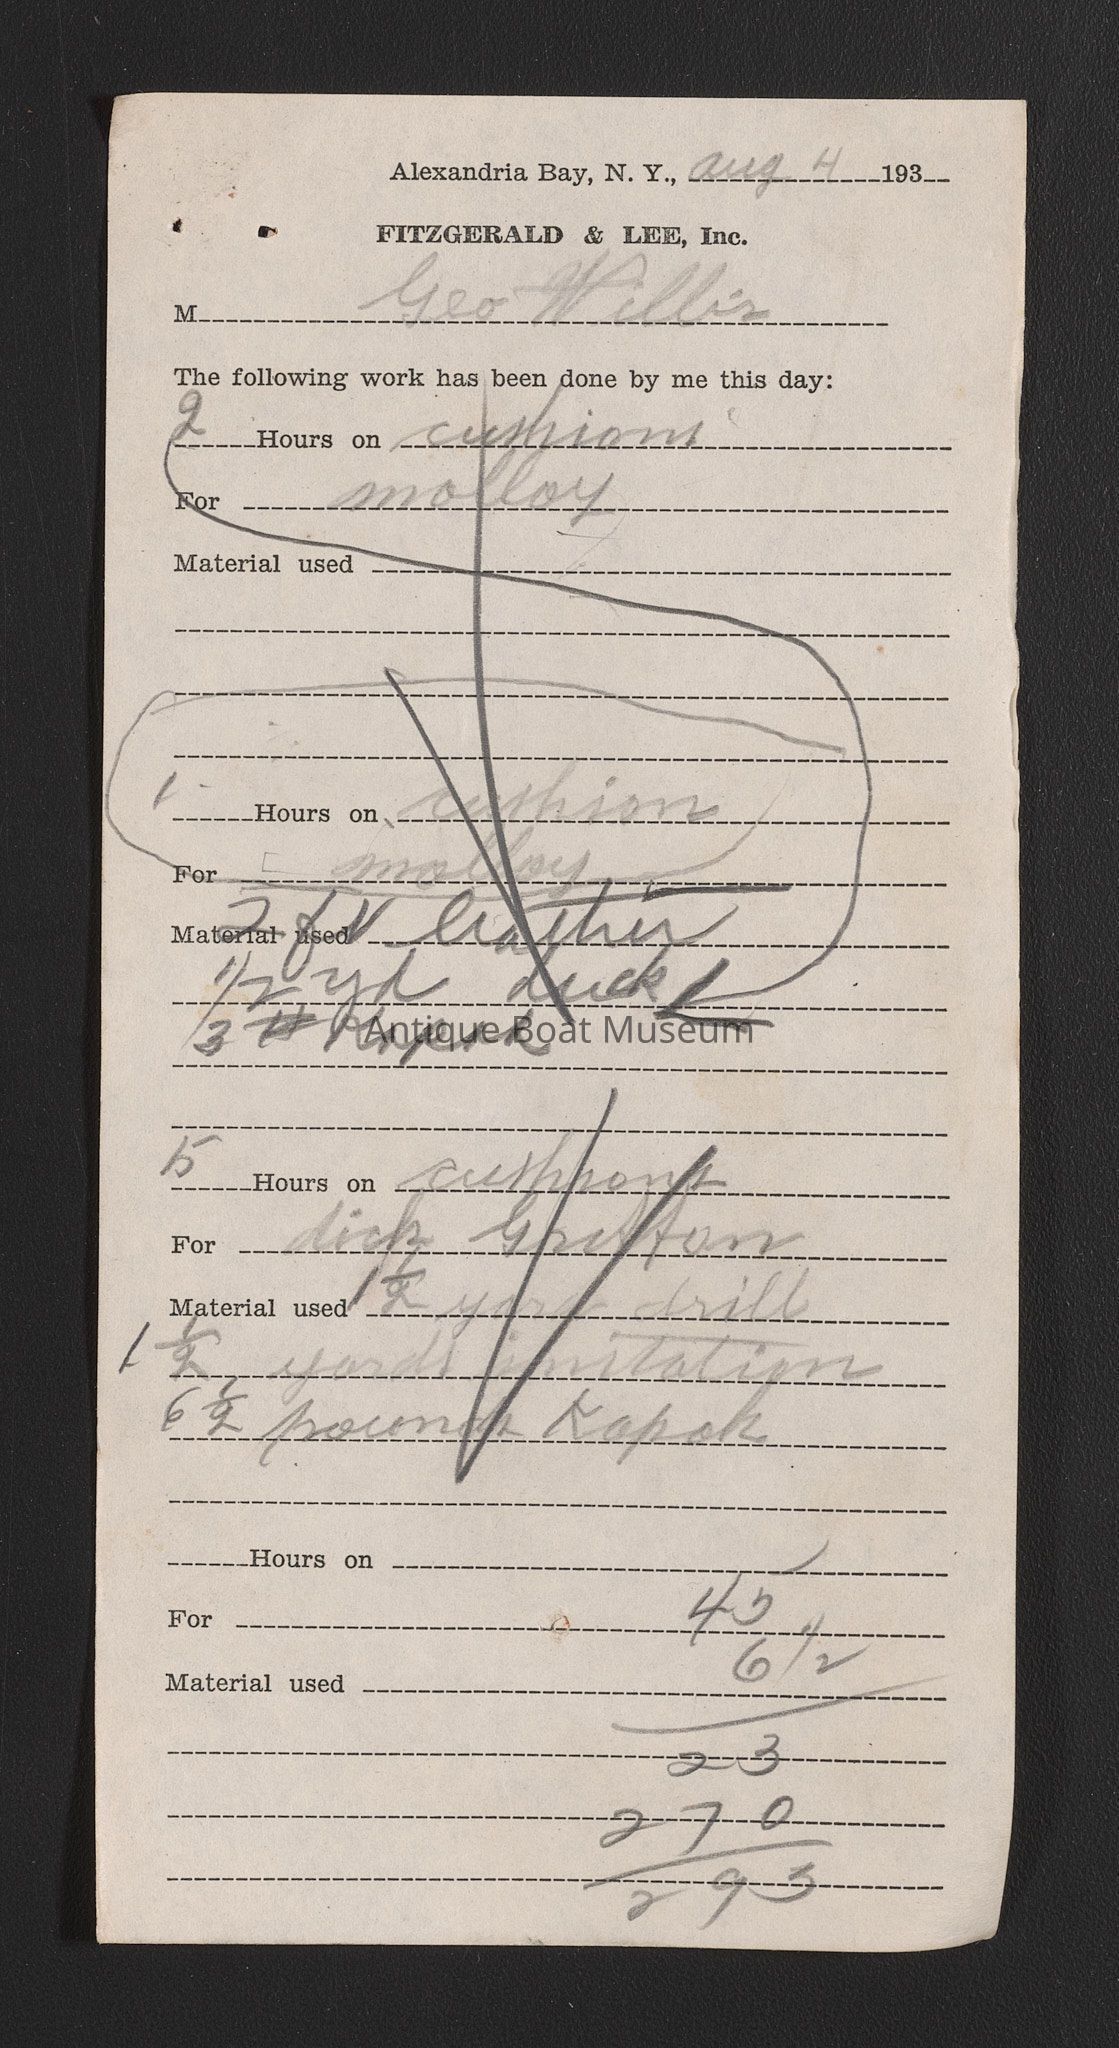 Alexandria Bay, N. Y., Aug 4 193
FITZGERALD & LEE, Inc.
M Geo Willis
The following work has been done by me this day:
2 Hours on cushions
For molloy
Material used
1 Hours on cushion
For molloy
Material used 2 ft leather
1/2 yd duck
3 # Kapok
Antique Boat Museum
5 Hours on cushions
For dick
Material used 1 1/2 yards drill
1 1/2 yards imitation
6 1/2 pounds Kapok
Hours on
For
45
6 1/2
Material used
23
270
293